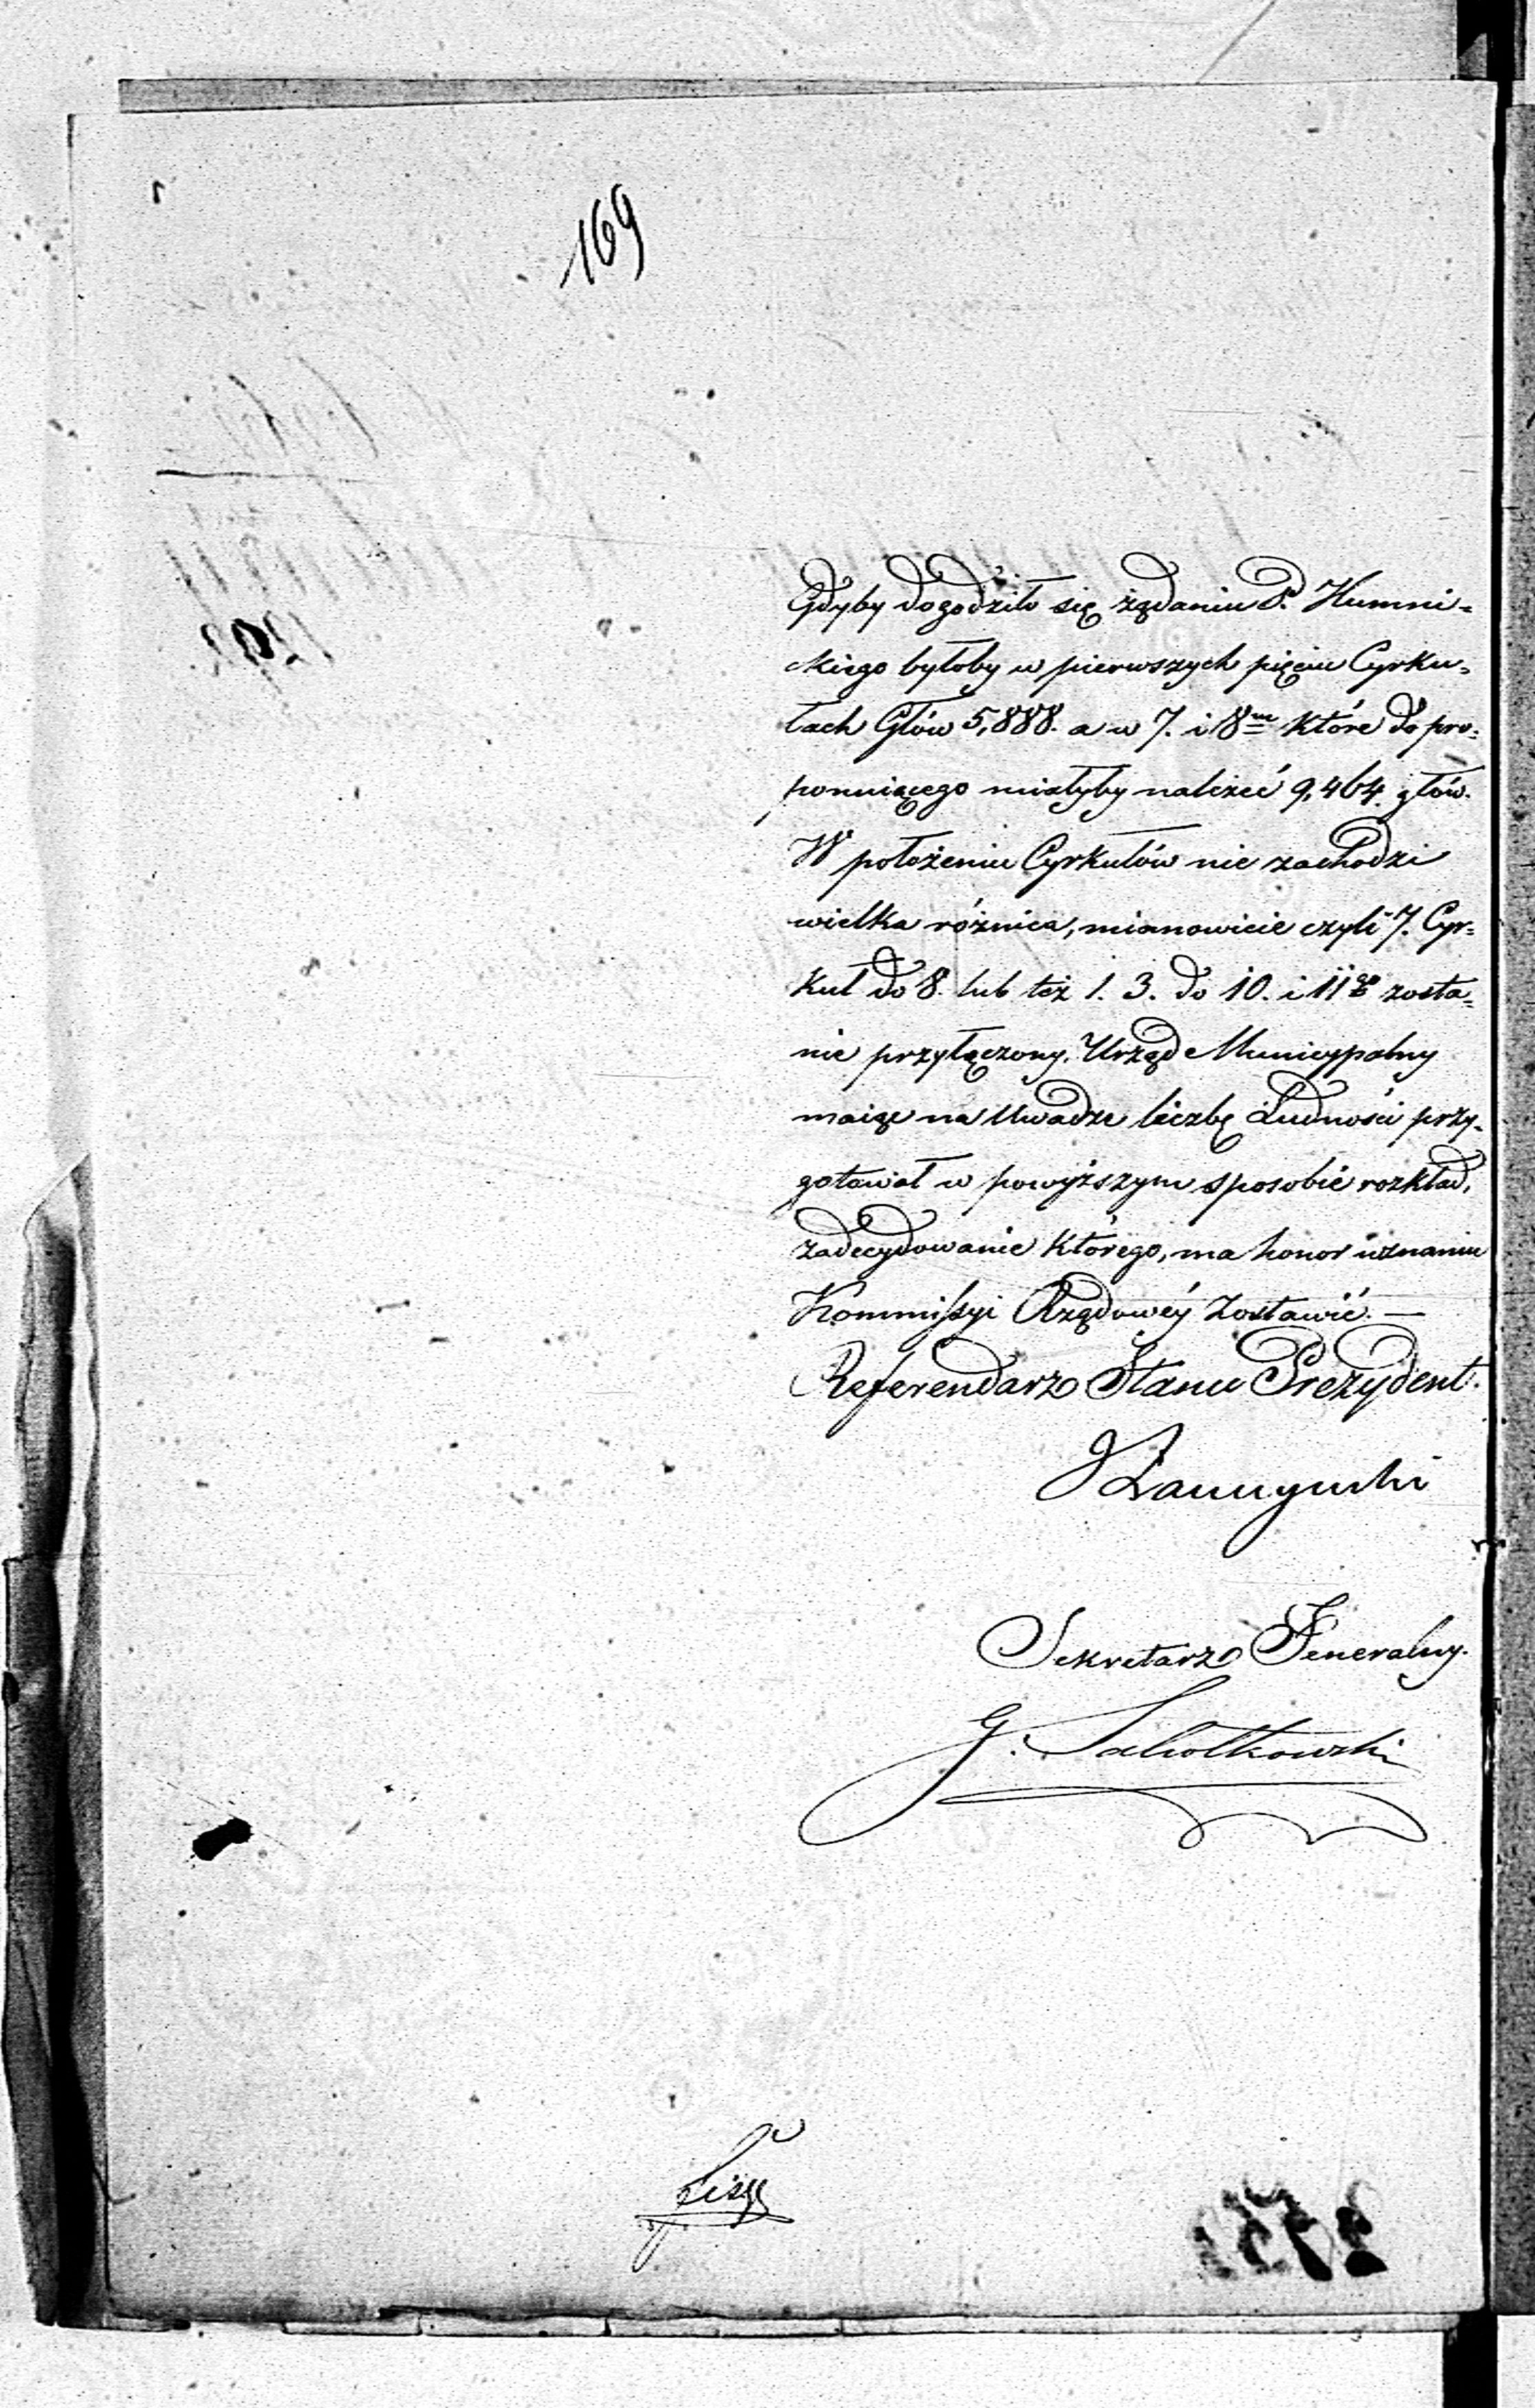 169
Gdyby dogodziło się żądaniu P. Humni-
ckiego byłoby w pierwszych pięciu Cyrku-
łach Głów 5,888. a w 7. i 8m które do pro-
ponuiącego miałyby należeć 9,464. głów.
W położeniu Cyrkułów nie zachodzi
wielka różnica, mianowicie czyli 7. Cyr-
kuł do 8. lub też 1. 3. do 10. i 11go zosta-
nie przyłączony. Urząd Municypalny
maiąc na Uwadze liczbę Ludności przy-
gotował w powyższym sposobie rozkład,
zadecydowanie którego, ma honor uznaniu
Kommissyi Rządowéy zostawić. —
Referendarz Stanu Prezydent.
Sekretarz Jeneralny.
G.